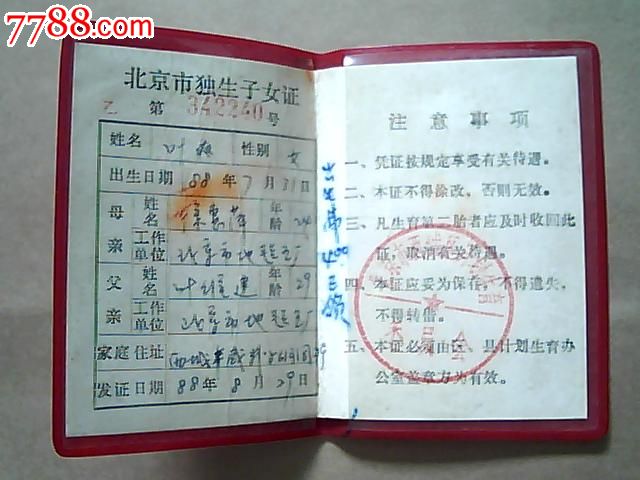 7788.com
北京市独生子女证
乙 第 342240 号
姓名 叶 性别 女
出生日期 88年7月31日
母亲 姓名 年龄
工作单位 北京市地毯五厂
父亲 姓名 叶维建 年龄 29
工作单位 北京市地毯五厂
家庭住址 西城
发证日期 88年8月29日
注意事项
一、凭证按规定享受有关待遇。
二、本证不得涂改，否则无效。
三、凡生育第二胎者应及时收回此
证，取消有关待遇。
四、本证应妥为保存，不得遗失，
不得转借。
五、本证必须由区、县计划生育办
公室盖章方为有效。